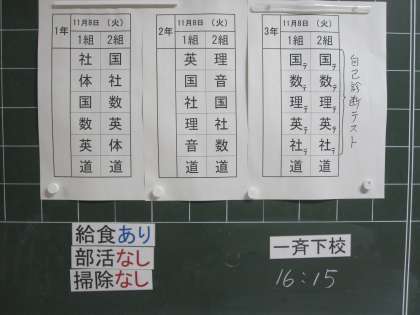 1年 11月8日 (火)
1組 2組
社 国
体 社
国 数
数 英
英 体
道 道
2年 11月8日 (火)
1組 2組
英 理
国 音
社 国
理 社
音 数
道 道
3年 11月8日 (火)
1組 2組
国テ 国テ
数テ 数テ
理テ 理テ
英テ 英テ
社テ 社テ
道 道
自己診断テスト
給食あり
部活なし
掃除なし
一斉下校
16:15